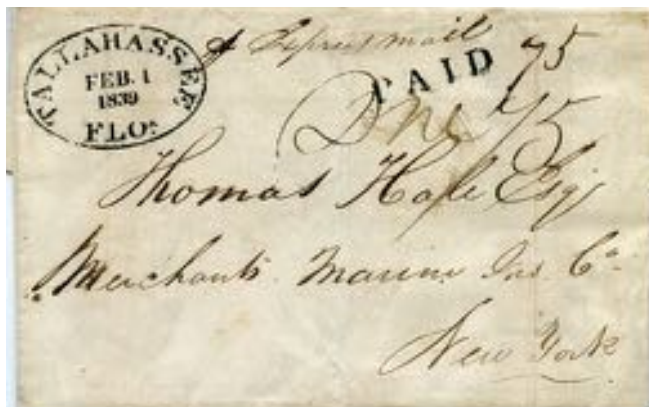 TALLAHASSEE
FEB. 1
1839
FLOa.
Express mail
PAID 75
75
Thomas Hale Esq
Merchants Marine Ins Co
New York